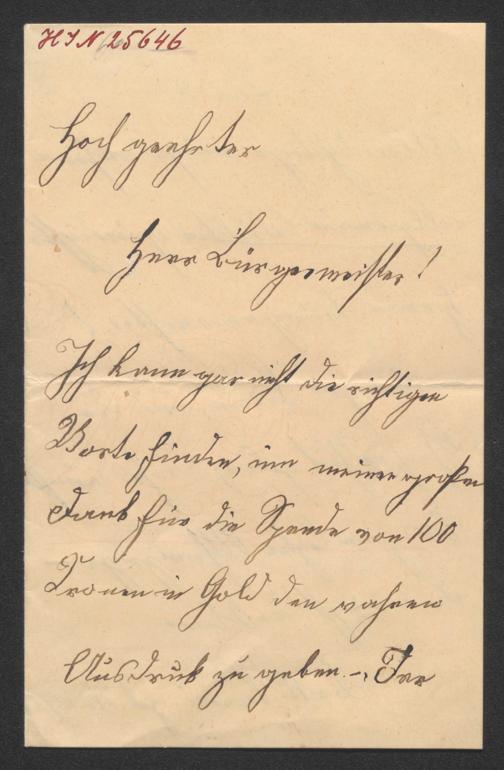 HIN 25646
Hoch geehrter
Herr Bürgermeister!
Ich kann gar nicht die richtigen
Worte finden, um meinen großen
Dank für die Spende von 100
Kronen in Gold den wahren
Ausdruk zu geben. –